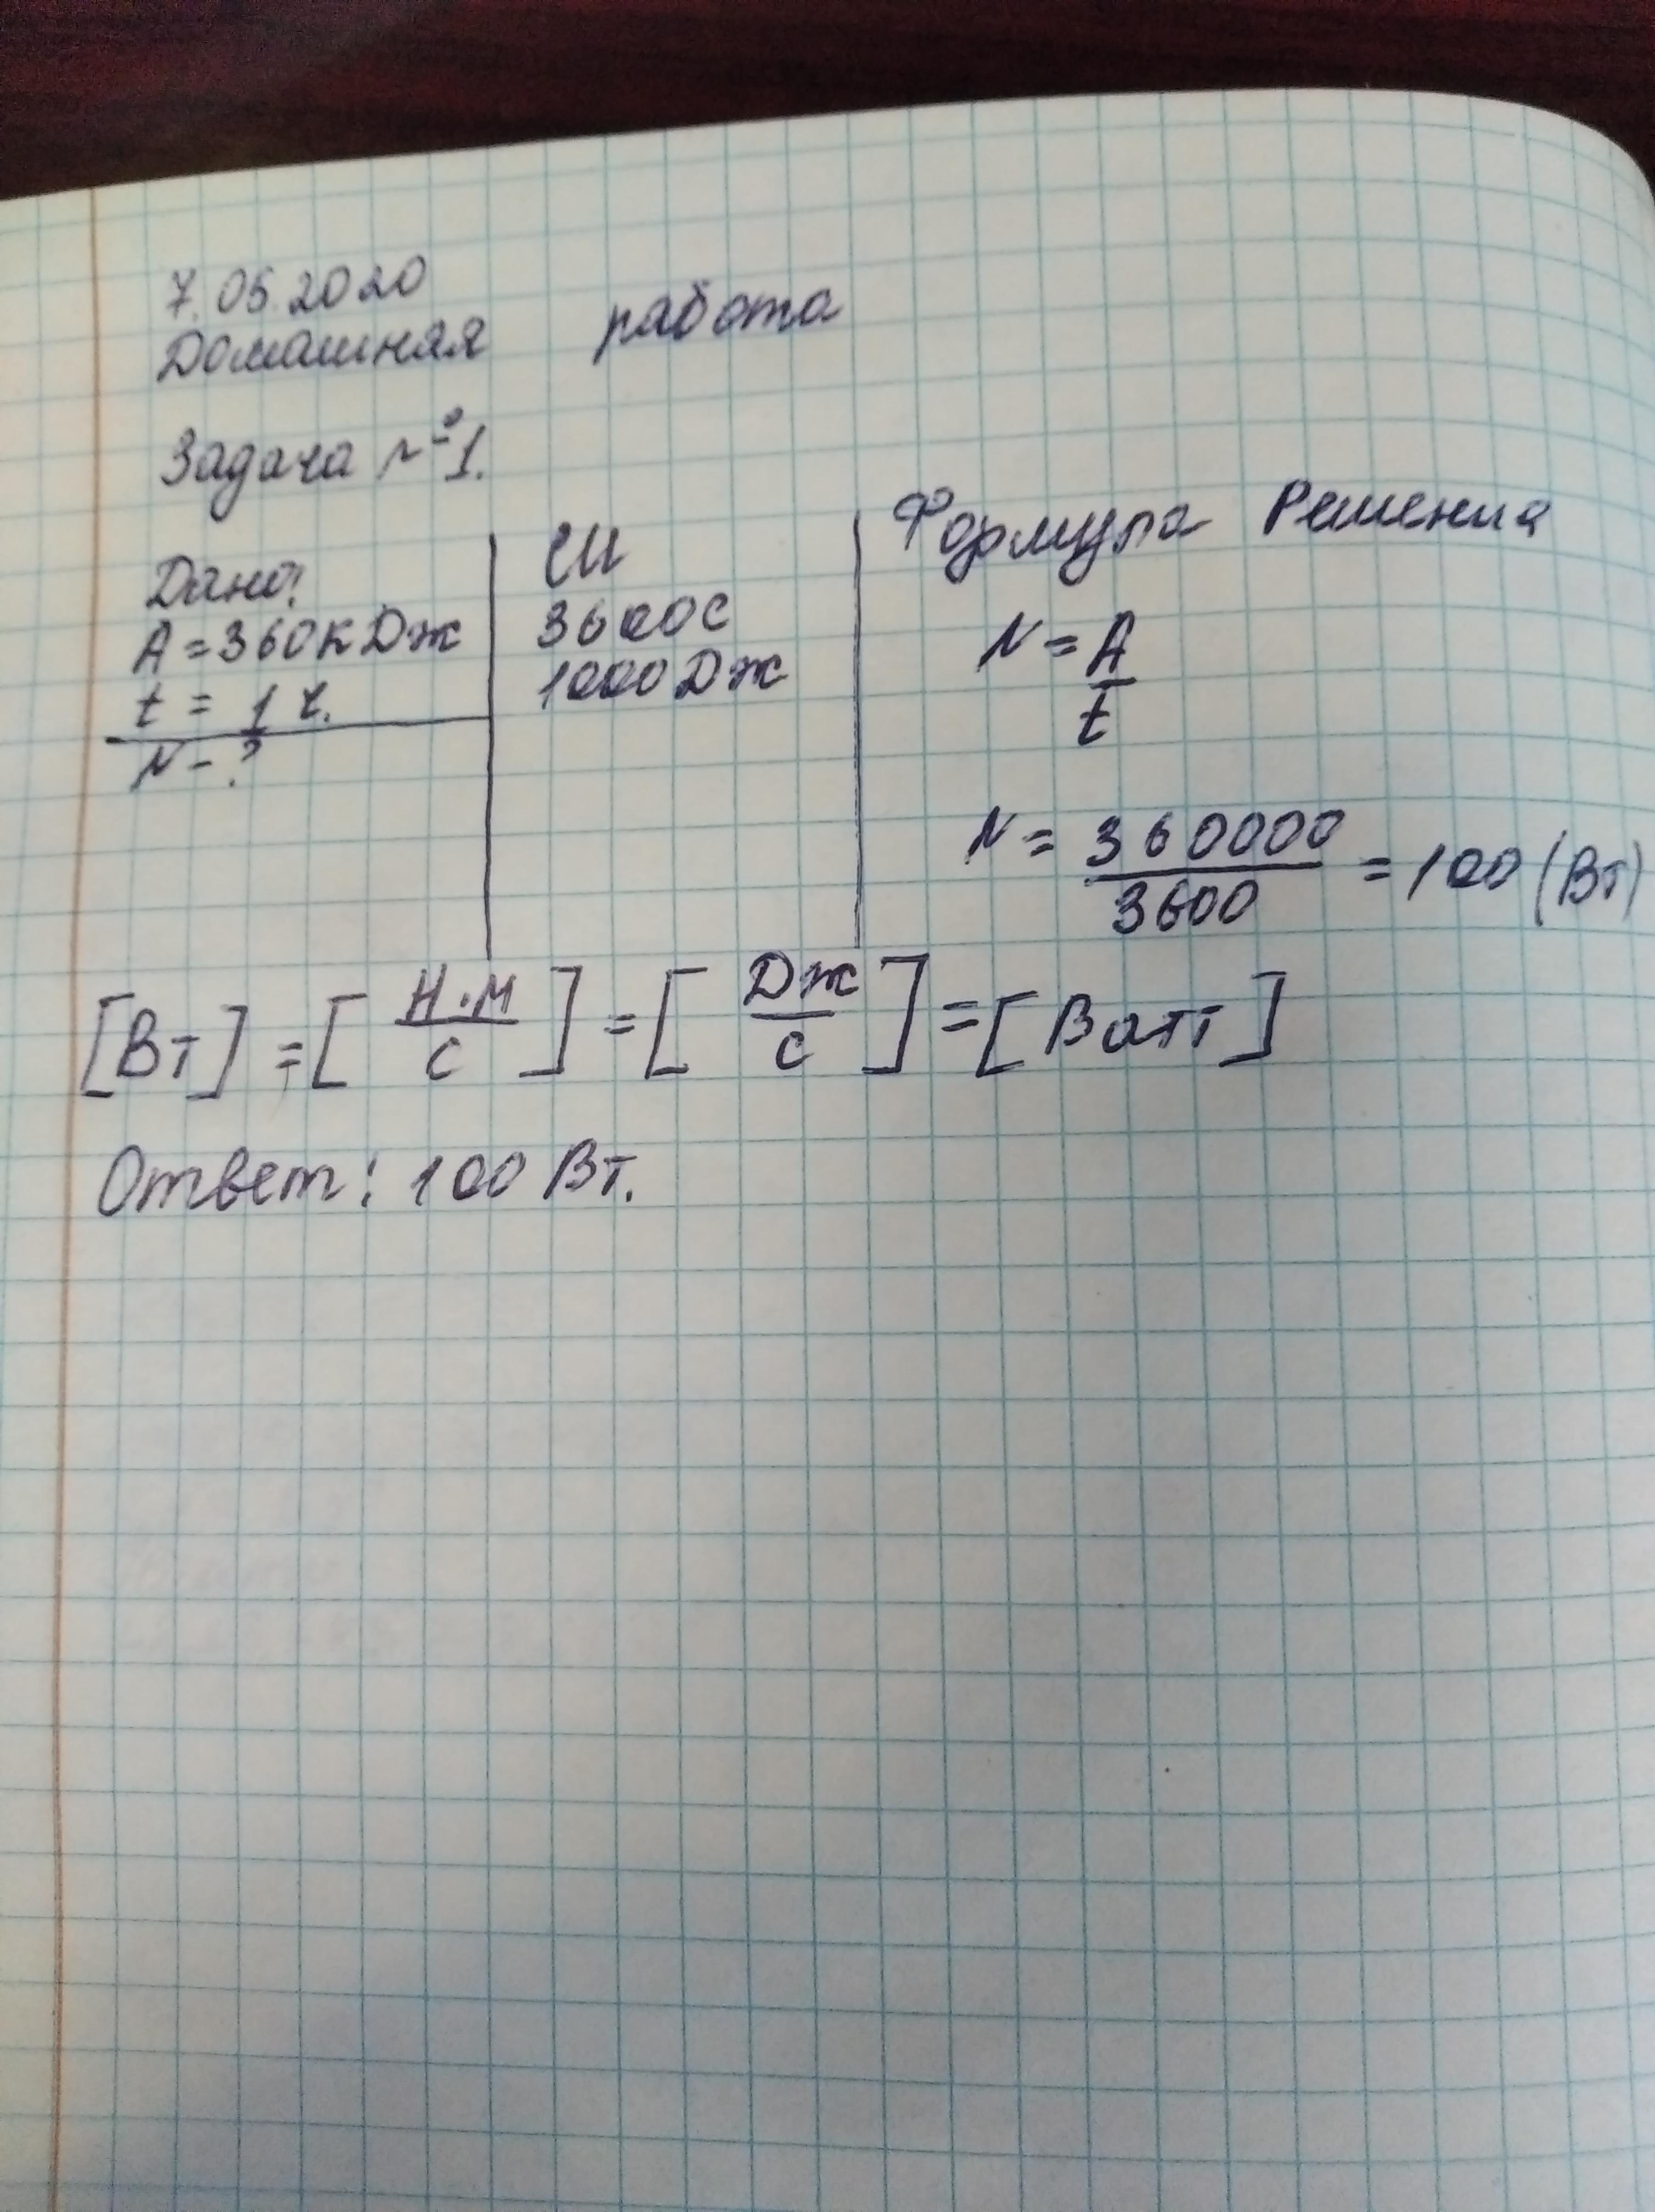 7.05.2020
Домашняя работа
Задача №1.
Дано:
А = 360кДж
t = 1 ч.
N - ?
СИ
3600с
1000Дж
Формула Решения
N = A/t
N = 360000/3600 = 100 (Вт)
[Вт] = [Н·м/с] = [Дж/с] = [Ватт]
Ответ: 100 Вт.